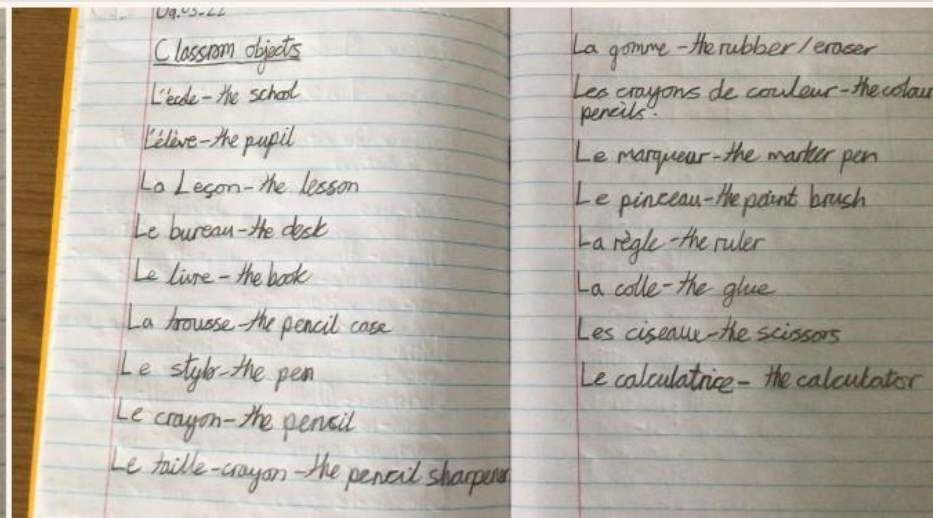 09.03.22
Classrom objects
L'école - the school
L'élève - the pupil
La Leçon - the lesson
Le bureau - the desk
Le livre - the book
La trousse - the pencil case
Le stylo - the pen
Le crayon - the pencil
Le taille-crayon - the pencil sharpener
La gomme - the rubber / eraser
Les crayons de couleur - the colour
pencils.
Le marquear - the marker pen
Le pinceau - the paint brush
La règle - the ruler
La colle - the glue
Les ciseaux - the scissors
Le calculatrice - the calculator